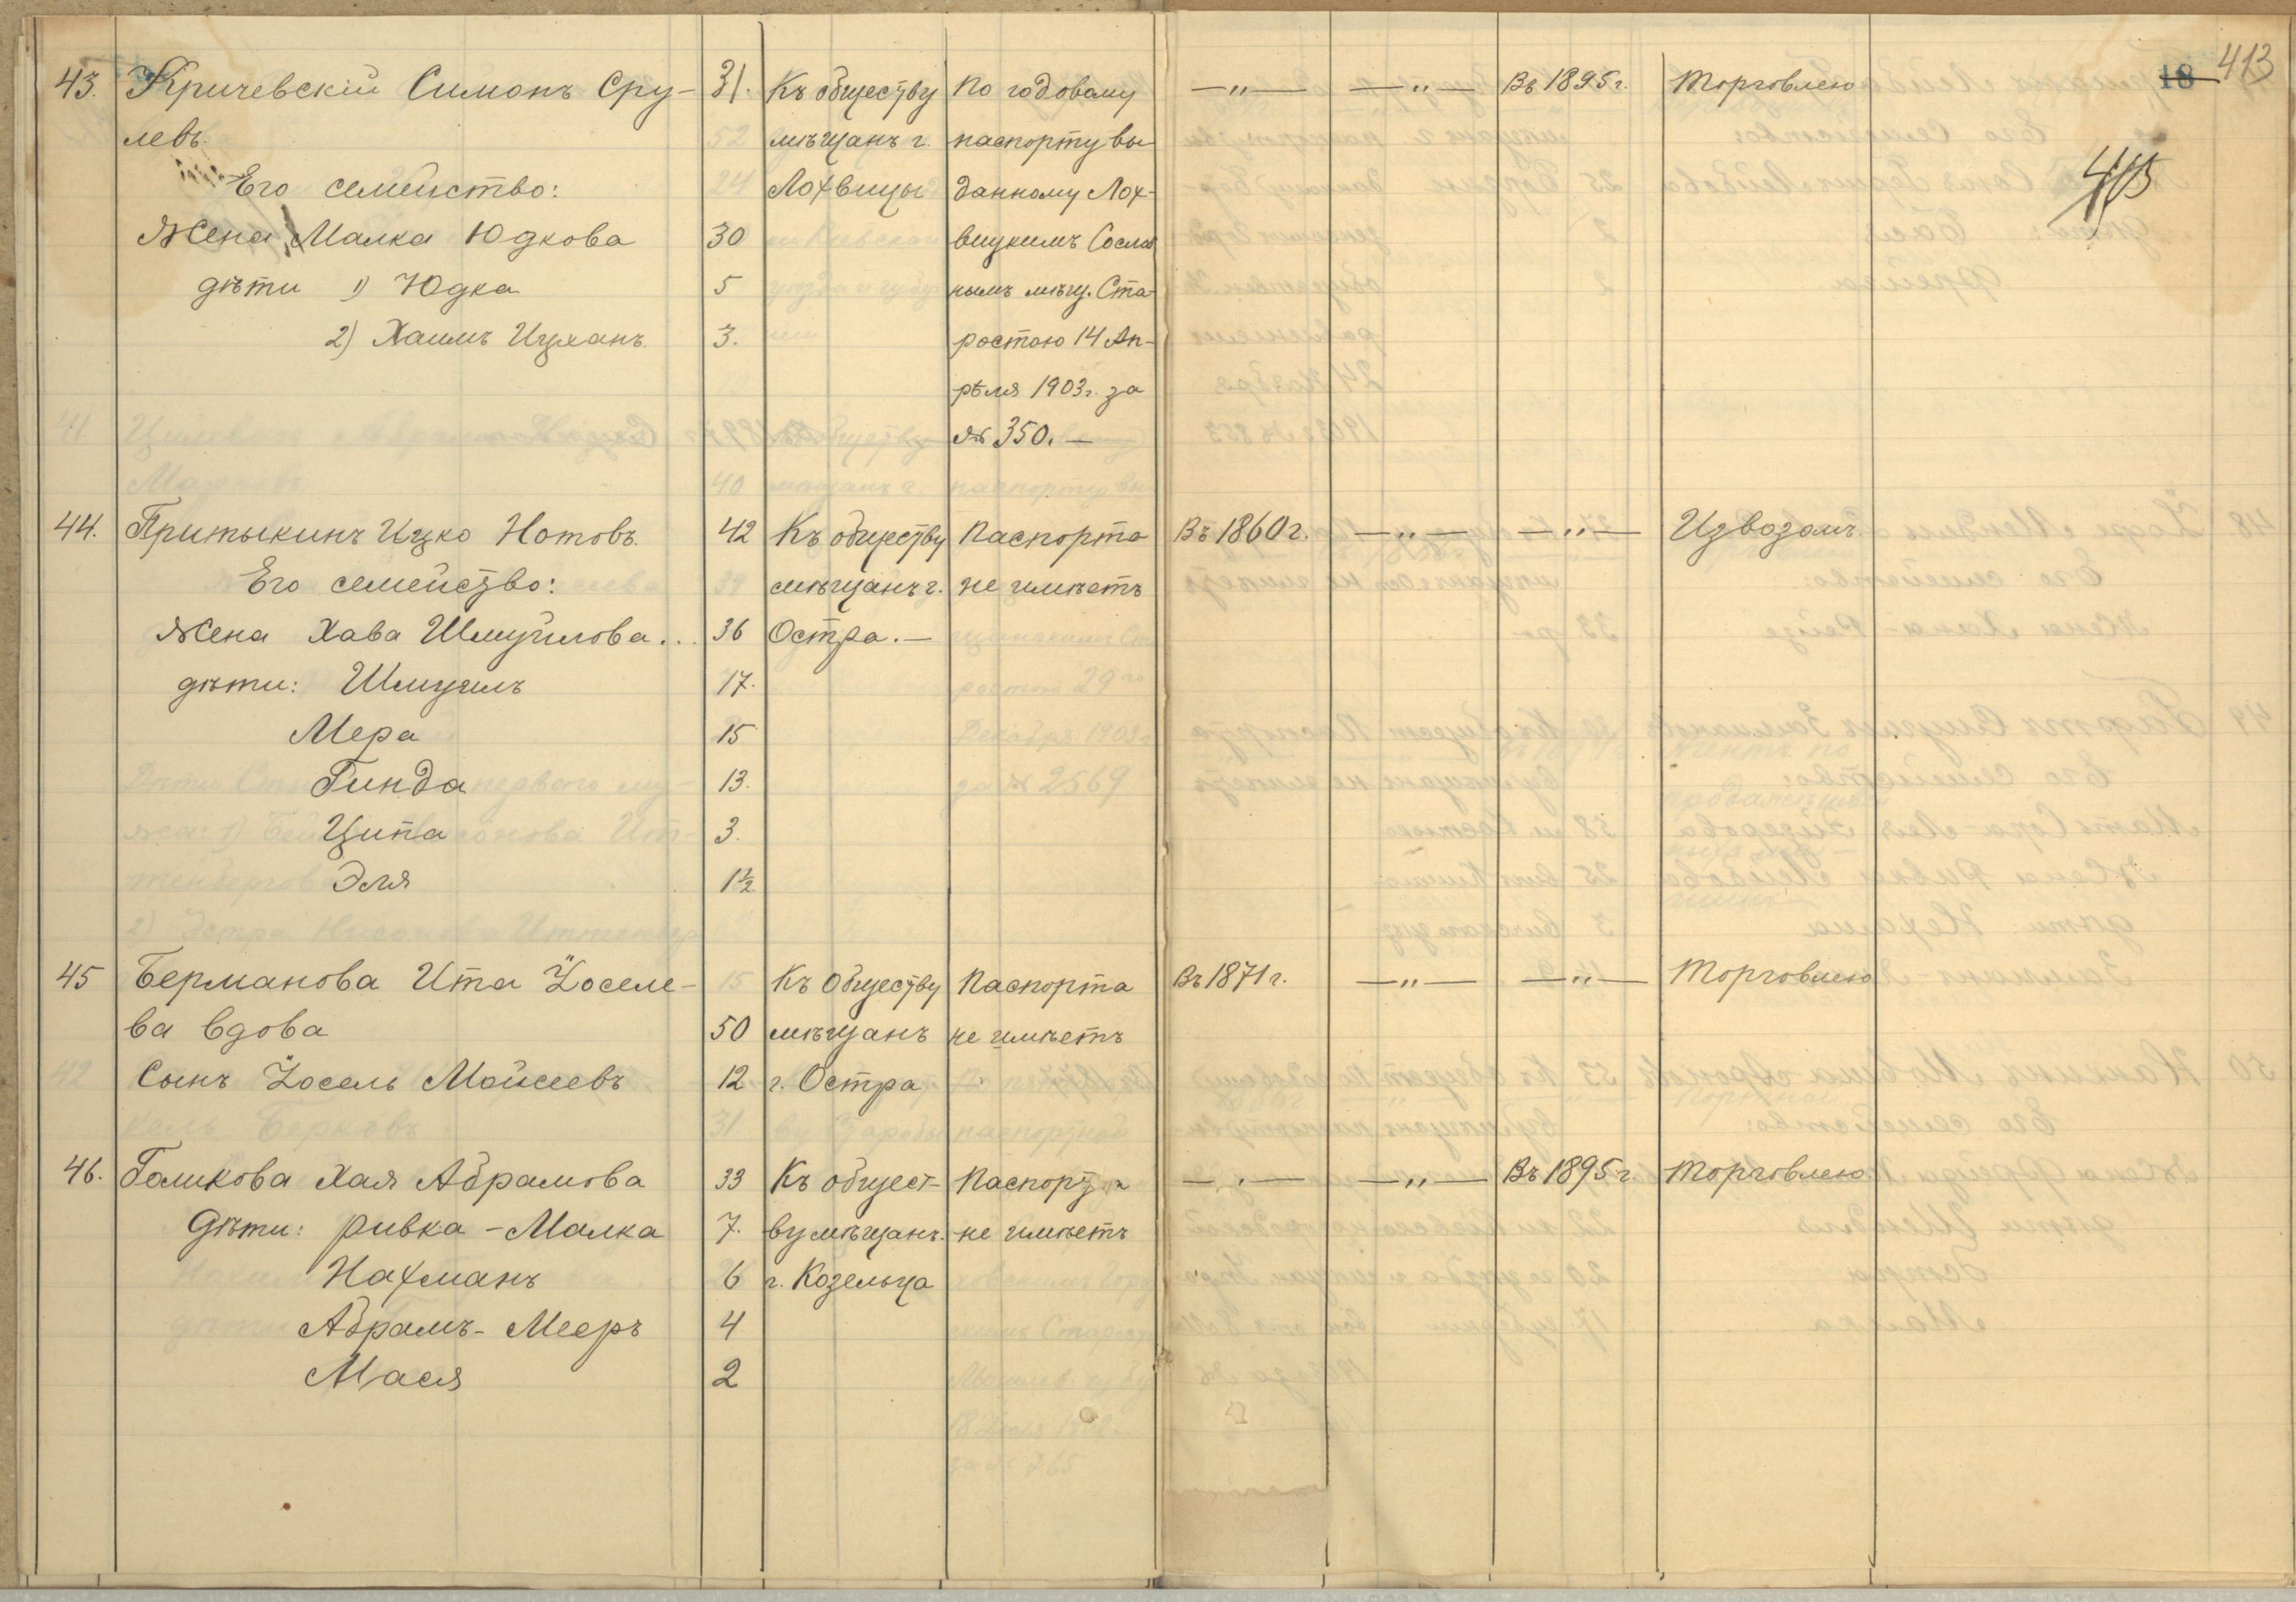 413
18
415
43. Кричевскій Симонъ Сру- 31. Къ обществу По годовому —„— —„— Въ 1895 г. Торговлею
левъ. мѣщанъ г. паспорту вы-
Его семейство: Лохвицы данному Лох-
Жена Малка Юдкова 30 вицкимъ Сослов
дѣти 1) Юдка 5 нымъ мѣщ. Ста-
2) Хаимъ Ицханъ. 3. ростою 14 Ап-
рѣля 1903 г. за
№ 350. —
44. Притыкинъ Ицко Нотовъ. 42 Къ обществу Паспорта Въ 1860 г. —„— —„— Извозомъ.
Его семейство: мѣщанъ г. не имѣетъ
Жена Хава Шмуйлова... 36 Остра. —
дѣти: Шмуилъ 17.
Мера 15
Гинда 13.
Ципа 3.
Эля 1½
45 Берманова Ита Іоселе- Къ Обществу Паспорта Въ 1871 г. —„— —„— Торговлею
ва вдова 50 мѣщанъ не имѣетъ
Сынъ Іосель Мойсеевъ 12 г. Остра
46. Голикова Хая Абрамова 33 Къ общест- Паспорта —„— —„— Въ 1895 г. Торговлею
Дѣти: Ривка - Малка 7. ву мѣщанъ. не имѣетъ
Нахманъ 6 г. Козельца
Абрамъ - Мееръ 4
Мася 2